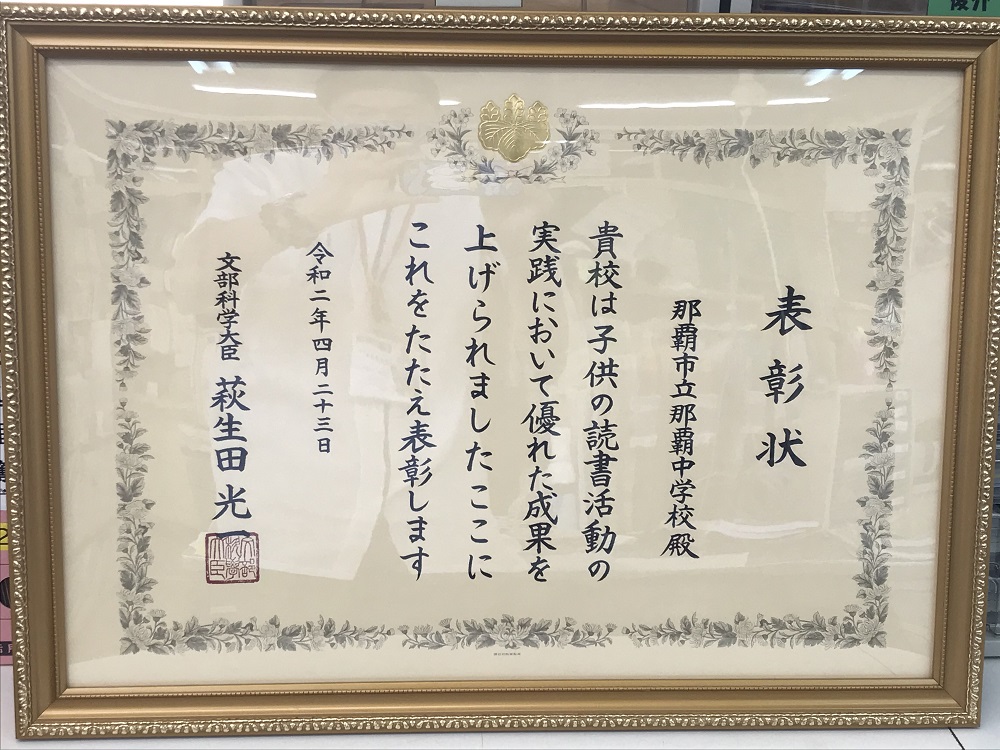 表彰状
那覇市立那覇中学校殿
貴校は子供の読書活動の
実践において優れた成果を
上げられましたここに
これをたたえ表彰します
令和二年四月二十三日
文部科学大臣 萩生田光一